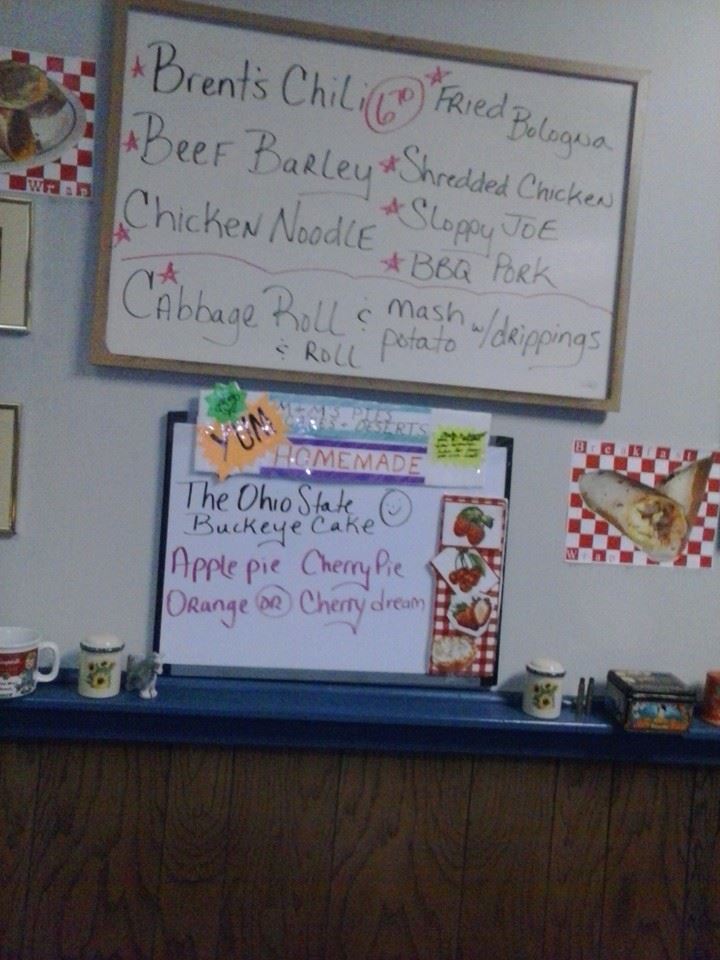 Brent's Chili 6.70
Beef Barley
Chicken Noodle
Fried Bologna
Shredded Chicken
Sloppy Joe
BBQ Pork
Cabbage Roll & mash potato w/drippings
& Roll
YUM
M+M'S PIES
CAKES + DESERTS
HOMEMADE
The Ohio State
Buckeye Cake
Apple pie Cherry Pie
Orange OR Cherry dream
Wrap
Breakfast
Wrap